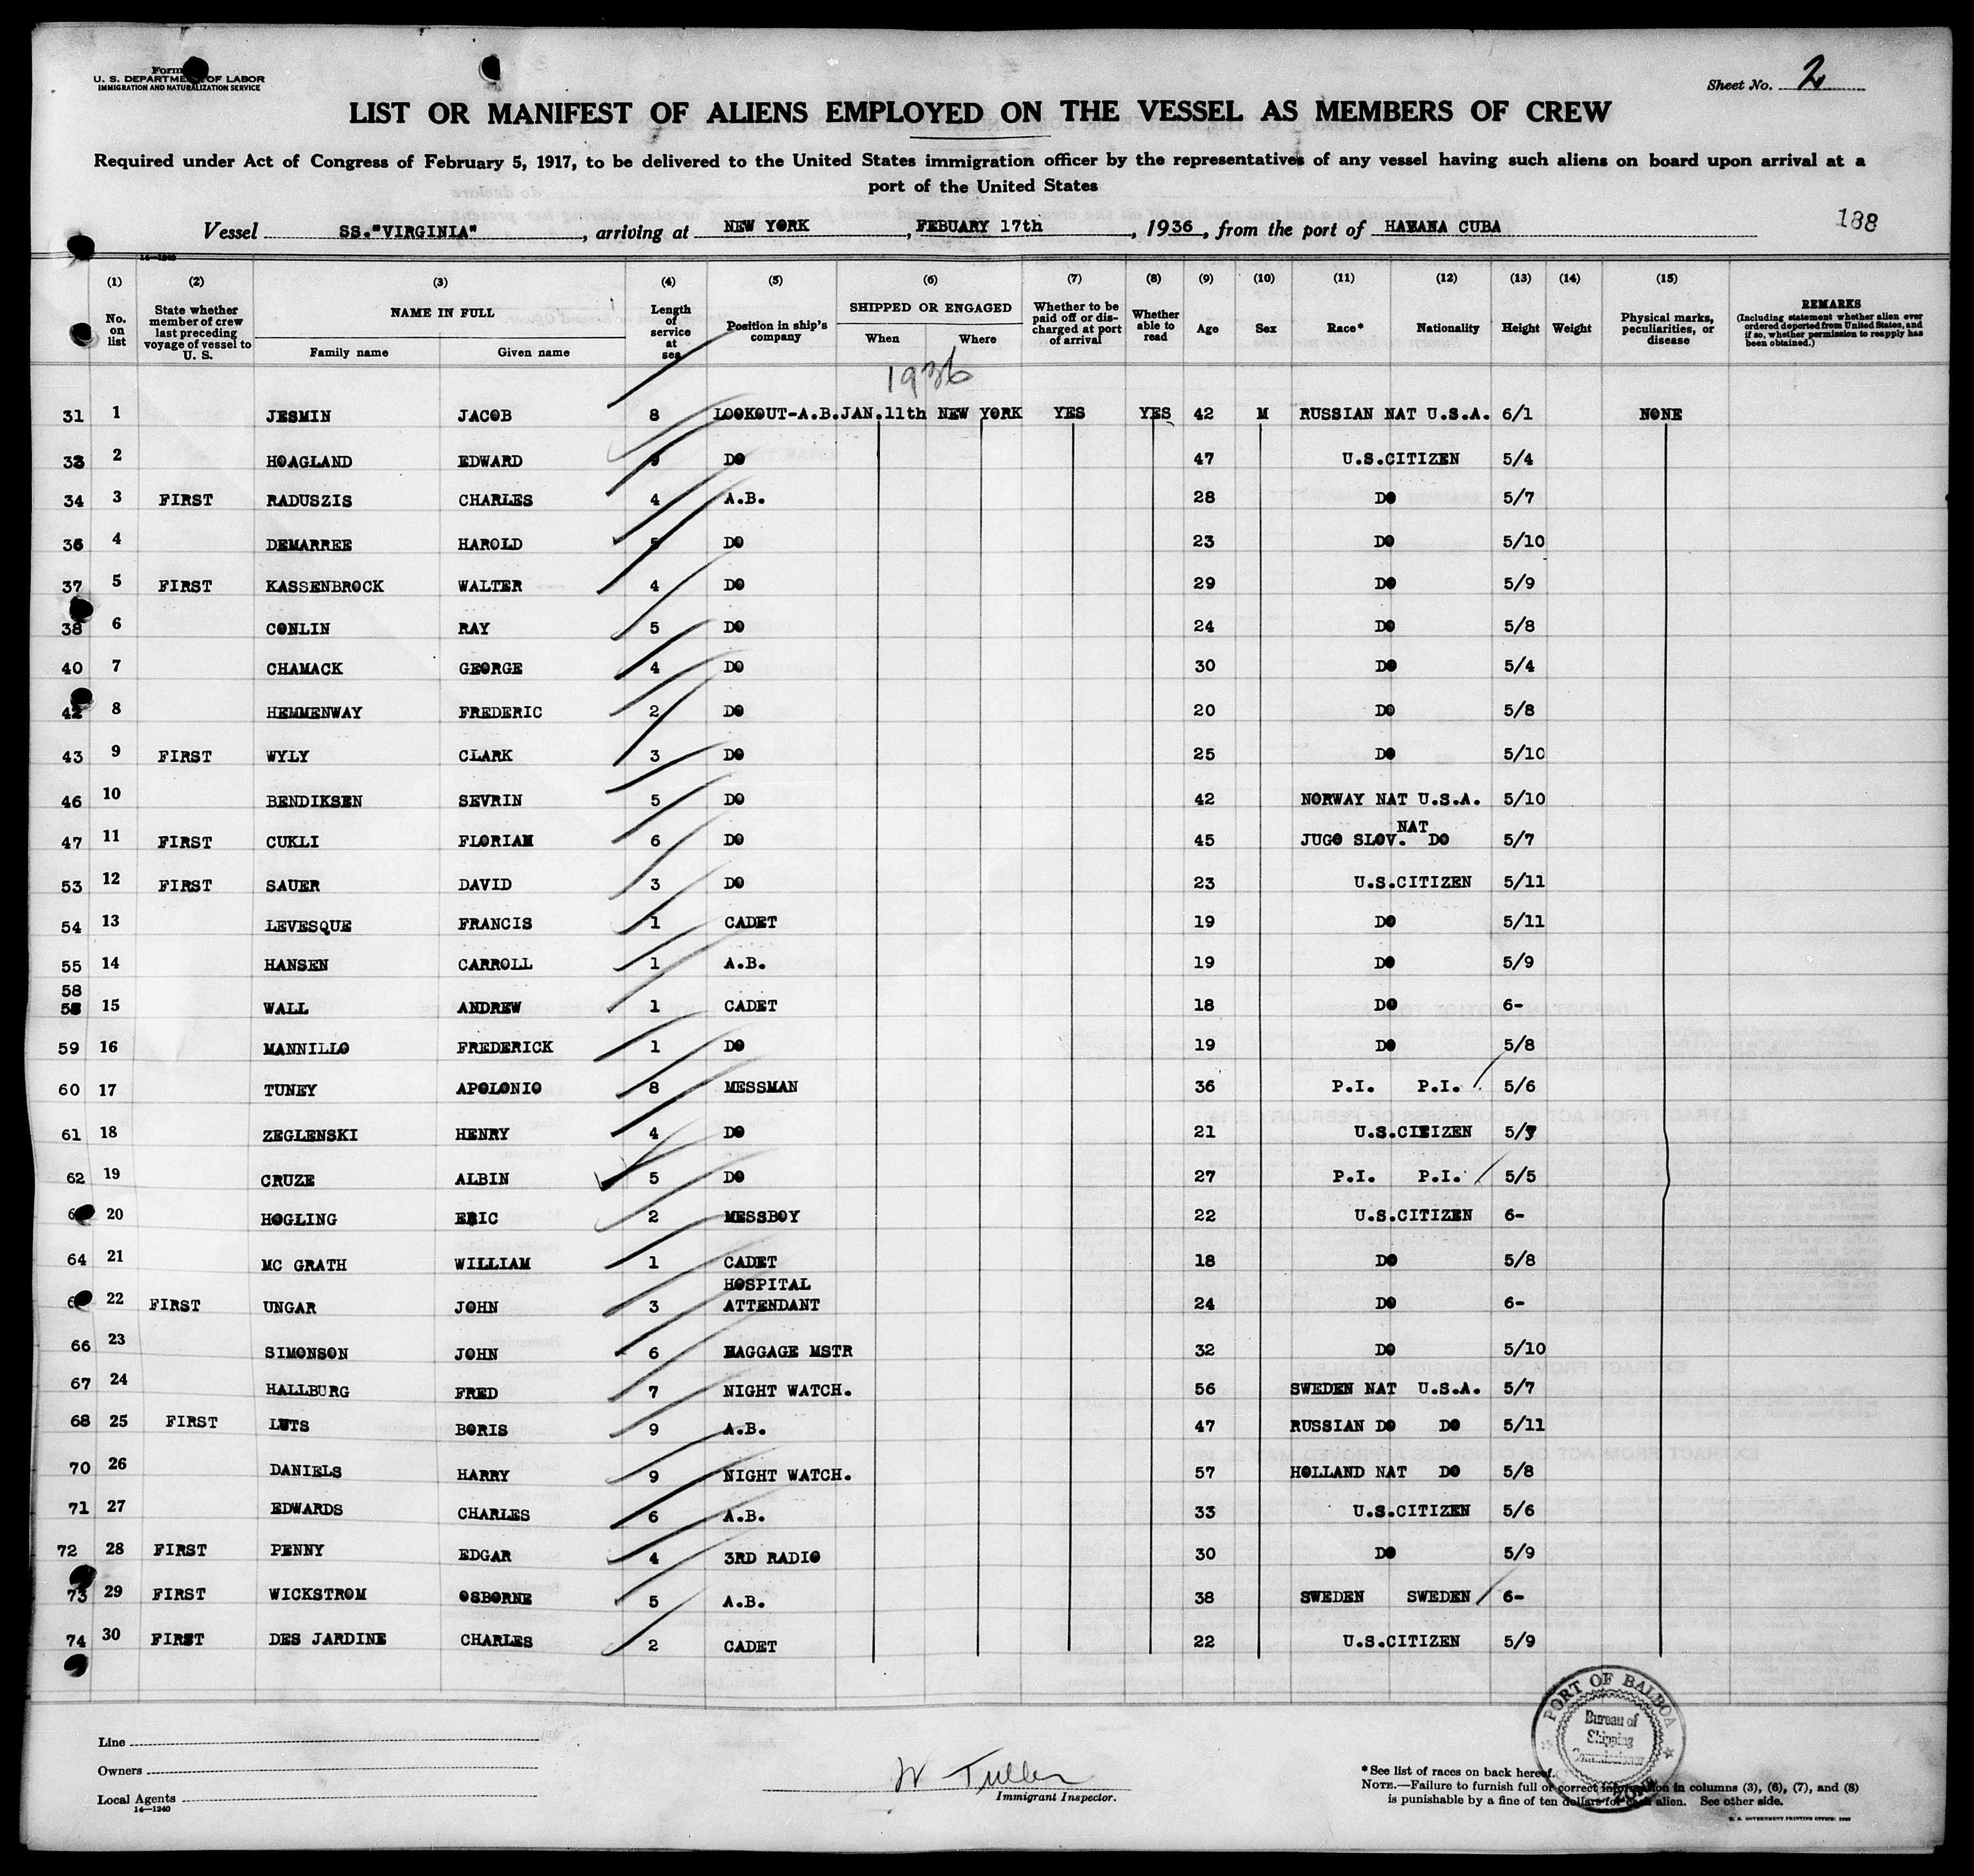 Form
U. S. DEPARTMENT OF LABOR
IMMIGRATION AND NATURALIZATION SERVICE
Sheet No. 2
LIST OR MANIFEST OF ALIENS EMPLOYED ON THE VESSEL AS MEMBERS OF CREW
Required under Act of Congress of February 5, 1917, to be delivered to the United States immigration officer by the representatives of any vessel having such aliens on board upon arrival at a
port of the United States
Vessel SS."VIRGINIA", arriving at NEW YORK, FEBUARY 17th, 1936, from the port of HAVANA CUBA
188
14—1240
(1) (2) (3) (4) (5) (6) (7) (8) (9) (10) (11) (12) (13) (14) (15)
No. on list
State whether member of crew last preceding voyage of vessel to U. S.
NAME IN FULL
Family name Given name
Length of service at sea
Position in ship's company
SHIPPED OR ENGAGED
When Where
Whether to be paid off or discharged at port of arrival
Whether able to read
Age Sex Race* Nationality Height Weight
Physical marks, peculiarities, or disease
REMARKS
(Including statement whether alien ever ordered deported from United States, and if so, whether permission to reapply has been obtained.)
1936
31 1 JESMIN JACOB 8 LOOKOUT-A.B. JAN.11th NEW YORK YES YES 42 M RUSSIAN NAT U.S.A. 6/1 NONE
33 2 HOAGLAND EDWARD 9 DO 47 U.S.CITIZEN 5/4
34 3 FIRST RADUSZIS CHARLES 4 A.B. 28 DO 5/7
36 4 DEMARREE HAROLD 5 DO 23 DO 5/10
37 5 FIRST KASSENBROCK WALTER 4 DO 29 DO 5/9
38 6 CONLIN RAY 5 DO 24 DO 5/8
40 7 CHAMACK GEORGE 4 DO 30 DO 5/4
42 8 HEMMENWAY FREDERIC 2 DO 20 DO 5/8
43 9 FIRST WYLY CLARK 3 DO 25 DO 5/10
46 10 BENDIKSEN SEVRIN 5 DO 42 NORWAY NAT U.S.A. 5/10
47 11 FIRST CUKLI FLORIAN 6 DO 45 JUGO SLOV. NAT DO 5/7
53 12 FIRST SAUER DAVID 3 DO 23 U.S.CITIZEN 5/11
54 13 LEVESQUE FRANCIS 1 CADET 19 DO 5/11
55 14 HANSEN CARROLL 1 A.B. 19 DO 5/9
58
15 WALL ANDREW 1 CADET 18 DO 6-
59 16 MANNILLO FREDERICK 1 DO 19 DO 5/8
60 17 TUNEY APOLONIO 8 MESSMAN 36 P.I. P.I. 5/6
61 18 ZEGLENSKI HENRY 4 DO 21 U.S.CITIZEN 5/7
62 19 CRUZE ALBIN 5 DO 27 P.I. P.I. 5/5
20 HOGLING ERIC 2 MESSBOY 22 U.S.CITIZEN 6-
64 21 MC GRATH WILLIAM 1 CADET 18 DO 5/8
22 FIRST UNGAR JOHN 3 HOSPITAL ATTENDANT 24 DO 6-
66 23 SIMONSON JOHN 6 BAGGAGE MSTR 32 DO 5/10
67 24 HALLBURG FRED 7 NIGHT WATCH. 56 SWEDEN NAT U.S.A. 5/7
68 25 FIRST LUTS BORIS 9 A.B. 47 RUSSIAN DO DO 5/11
70 26 DANIELS HARRY 9 NIGHT WATCH. 57 HOLLAND NAT DO 5/8
71 27 EDWARDS CHARLES 6 A.B. 33 U.S.CITIZEN 5/6
72 28 FIRST PENNY EDGAR 4 3RD RADIO 30 DO 5/9
73 29 FIRST WICKSTROM OSBORNE 5 A.B. 38 SWEDEN SWEDEN 6-
74 30 FIRST DES JARDINE CHARLES 2 CADET 22 U.S.CITIZEN 5/9
PORT OF BALBOA
Bureau of
Shipping
Commissioner
Line
Owners
Local Agents
14—1240
W Tuller
Immigrant Inspector.
*See list of races on back hereof.
NOTE.—Failure to furnish full or correct information in columns (3), (6), (7), and (8)
is punishable by a fine of ten dollars for each alien. See other side.
U. S. GOVERNMENT PRINTING OFFICE